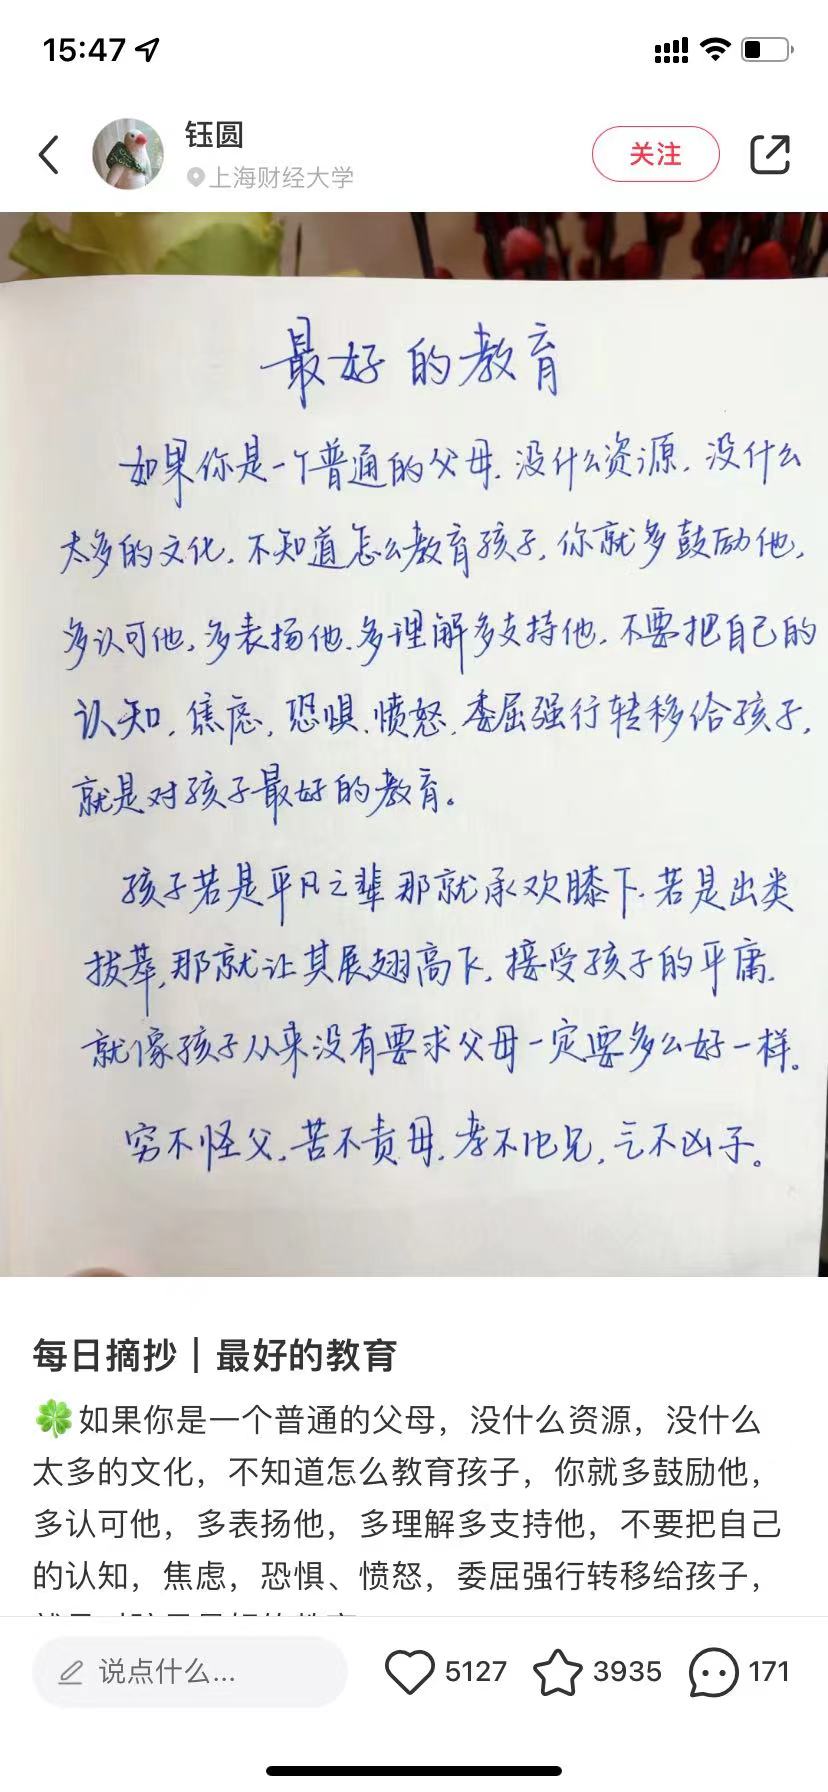 15:47
钰圆
上海财经大学
关注
最好的教育
如果你是一个普通的父母.没什么资源.没什么
太多的文化.不知道怎么教育孩子,你就多鼓励他,
多认可他,多表扬他.多理解多支持他.不要把自己的
认知,焦虑,恐惧.愤怒.委屈强行转移给孩子,
就是对孩子最好的教育。
孩子若是平凡之辈那就承欢膝下.若是出类
拔萃,那就让其展翅高飞,接受孩子的平庸.
就像孩子从来没有要求父母一定要多么好一样.
穷不怪父.苦不责母.孝不比兄,气不凶子。
每日摘抄｜最好的教育
🍀如果你是一个普通的父母，没什么资源，没什么
太多的文化，不知道怎么教育孩子，你就多鼓励他，
多认可他，多表扬他，多理解多支持他，不要把自己
的认知，焦虑，恐惧、愤怒，委屈强行转移给孩子，
说点什么...
5127
3935
171